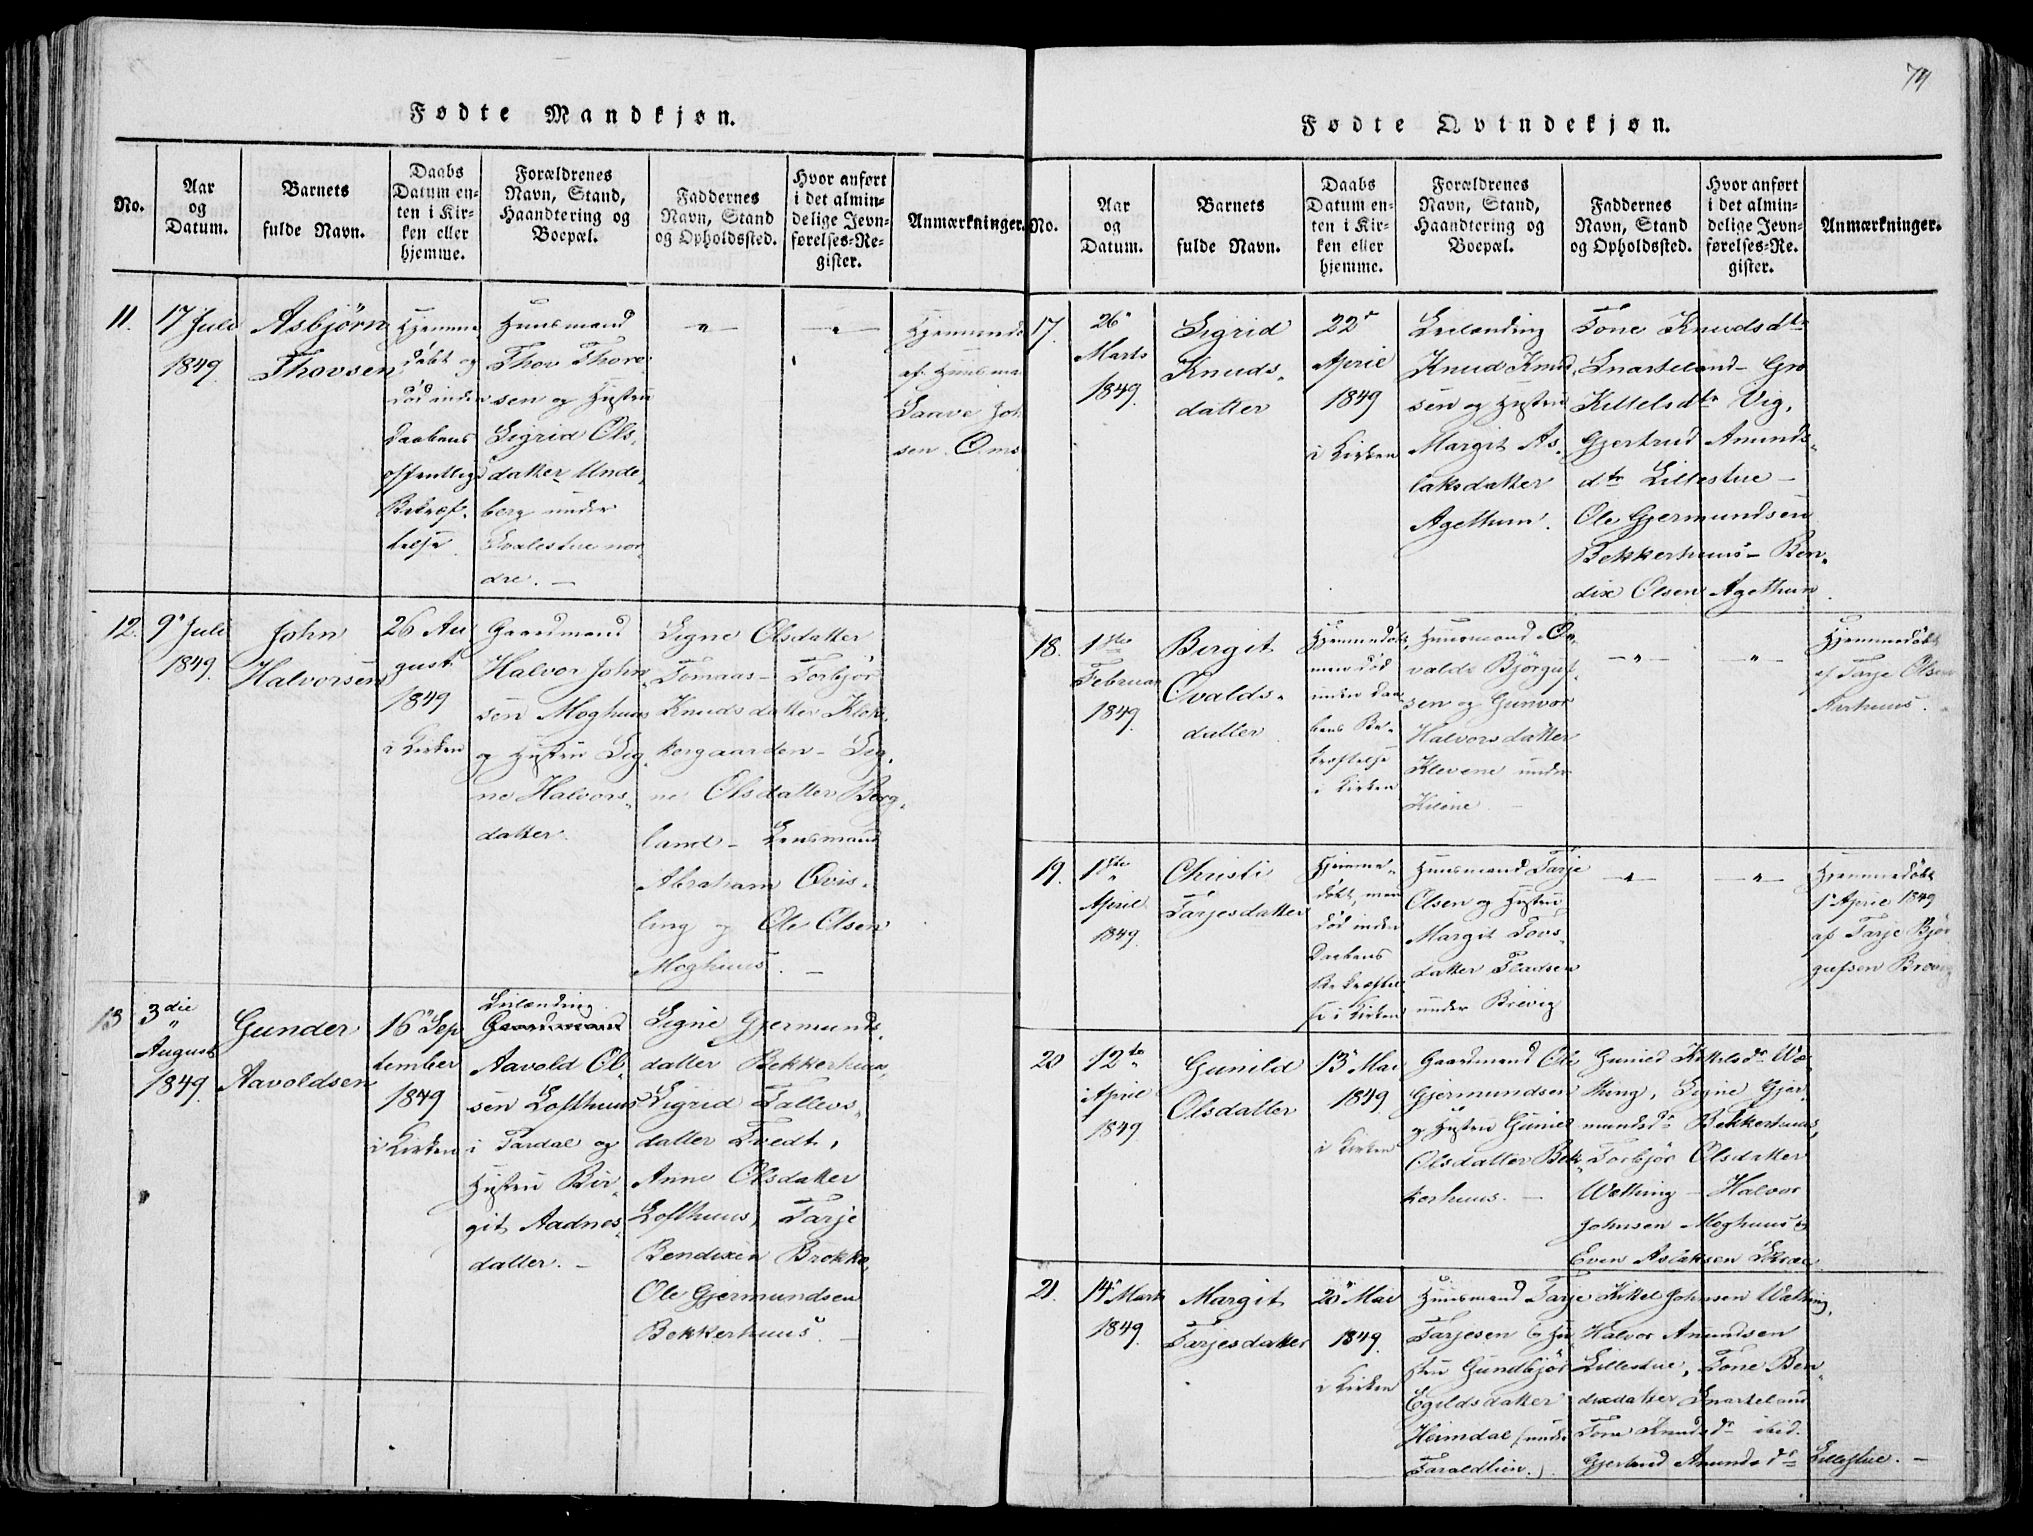 Fødte Mandkjøn.
No.
Aar
og
Datum.
Barnets
fulde Navn.
Daabs
Datum en-
ten i Kir-
ken eller
hjemme.
Forældrenes
Navn, Stand,
Haandtering og
Boepæl.
Faddernes
Navn, Stand
og Opholdssted.
Hvor anført
i det almin-
delige Jevn-
førelses-Re-
gister.
Anmærkninger.
11.
17 Juli
1849.
Asbjörn
Thovsen
Hjemme
döbt og
död inden
Daabens
offentlige
Bekræf-
telse.
Huusmand
Thov Thore-
sen og Hustru
Sigrid Ols-
datter Unde-
berg under
nor-
dre. —
— " —
— " —
Hjemmed
af Huusma
Saave Joh
sen Oms
12.
9' Juli
1849.
John
Halvorsen
26 Au
gust
1849
i Kirken
Gaardmand
Halvor John-
sen Moghuus
og Hustru Sig-
ne Halvors-
datter.
Signe Olsdatter
Tomaas- Torbjör
Knudsdatter Klok-
kergaarden - Sig-
ne Olsdatter Berg-
land - Lensmand
Abraham Qvis-
ling og Ole Olsen
Moghuus. —
13
3die
August
1849.
Gunder
Aavoldsen
16" Sep
tember
1849
i Kirken
Leilænding
Gaardmand
Aavold Ol-
sen Lofthuus
i Tardal og
Hustru Bir-
git Aadnes-
datter. —
Signe Gjermunds-
datter Bekkerhuus,
Sigrid Tallevs-
datter Tvedt,
Anne Olsdatter
Lofthuus, Tarje
Bendixen Brokke,
Ole Gjermundsen
Bekkerhuus. —
74
Fødte Qvindekjøn.
No.
Aar
og
Datum.
Barnets
fulde Navn.
Daabs
Datum en-
ten i Kir-
ken eller
hjemme.
Forældrenes
Navn, Stand,
Haandtering og
Boepæl.
Faddernes
Navn, Stand
og Opholdssted.
Hvor anført
i det almin-
delige Jevn-
førelses-Re-
gister.
Anmærkninger.
17.
26"
Marts
1849.
Sigrid
Knuds-
datter
22"
April
1849
i Kirken
Leilænding
Knud Knud-
sen og Hustru
Margit As-
laksdatter
Agethun.
Tone Knudsdtr
Snarteland - Gro
Kittelsdtr Vig,
Gjertrud Amunds-
dtr Lillestue -
Ole Gjermundsen
Bekkerhuus - Ben-
dix Olsen Agethun.
18.
1ste
Februar
1849.
Bergit
Ovalds-
datter
Hjemmedöbt,
men död
inden Daa-
bens Be-
kræftelse
i Kirken
Huusmand O-
valdt Björguf-
sen og Gunvor
Halvorsdatter
Klevene under
Kilene. —
— " —
— " —
Hjemmedöbt
af Tarje Olsen
Aarhuus.
19.
1ste
April
1849.
Christi
Tarjesdatter
Hjemme-
döbt, men
död inden
Daabens
Bekræftel
se i Kirken
Huusmand Tarje
Olsen og Hustru
Margit Tovs-
datter Fladsen
under Brevig
— " —
— " —
Hjemmedöbt
1' April 1849
af Tarje Björ
gufsen Brevig
20
12te
April
1849
Gunild
Olsdatter
13" Mai
1849
i Kirken
Gaardmand Ole
Gjermundsen
og Hustru Gunild
Olsdatter Bek-
kerhuus. —
Gunild Kittelsdr Wæ-
thing, Signe Gjer-
mundsdr Bekkerhuus,
Torbjör Olsdatter
Wæthing - Halvor
Johnsen Moghuus og
Even Aslaksen
21.
14" Marts
1849.
Margit
Tarjesdatter
20" Mai
1849.
i Kirken
Huusmand Tarje
Tarjesen og Hu-
stru Gundbjör
Egildsdatter
Heimdal (under
Taraldlien.)
Kittel Johnsen Wæthing,
Halvor Amundsen
Lillestue, Tone Ben-
dixdatter Snarteland
Tone Knudsdr ibid.
Gjertrud Amundsdr Lillestue. —